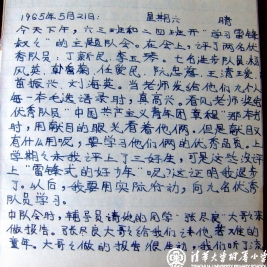 1965年5月21日： 星期六 晴
今天下午，六三班和二四班开“学习雷锋
叔叔”的主题队会。在会上，评了两名优
秀队员，丁新民、李五琴。七名进步队员
风英、韩　　、任爱民、阮忠　、王清
雷振兴、刘海英。当老师发给他们每个人
每一本毛选语录时，真高兴。看见老师奖给
优秀队员“中国共产主义青年团章程”那本书
时，用敬目的眼光看着他们。但是敬目又
有什么用呢，要学习他们两的优秀队员。上
学期之末我评上了三好生，可是这些没评
上“雷锋式的好少年”呢？这证明我退步
了。从后，我要用实际行动，向几名优秀
队员学习。
中队会时，辅导员请她的同学“张尽良”大哥
做报告。张尽良大哥给我们讲他　　的
童年。大哥哥做的报告很生动，我们听了
清华大学附属小学